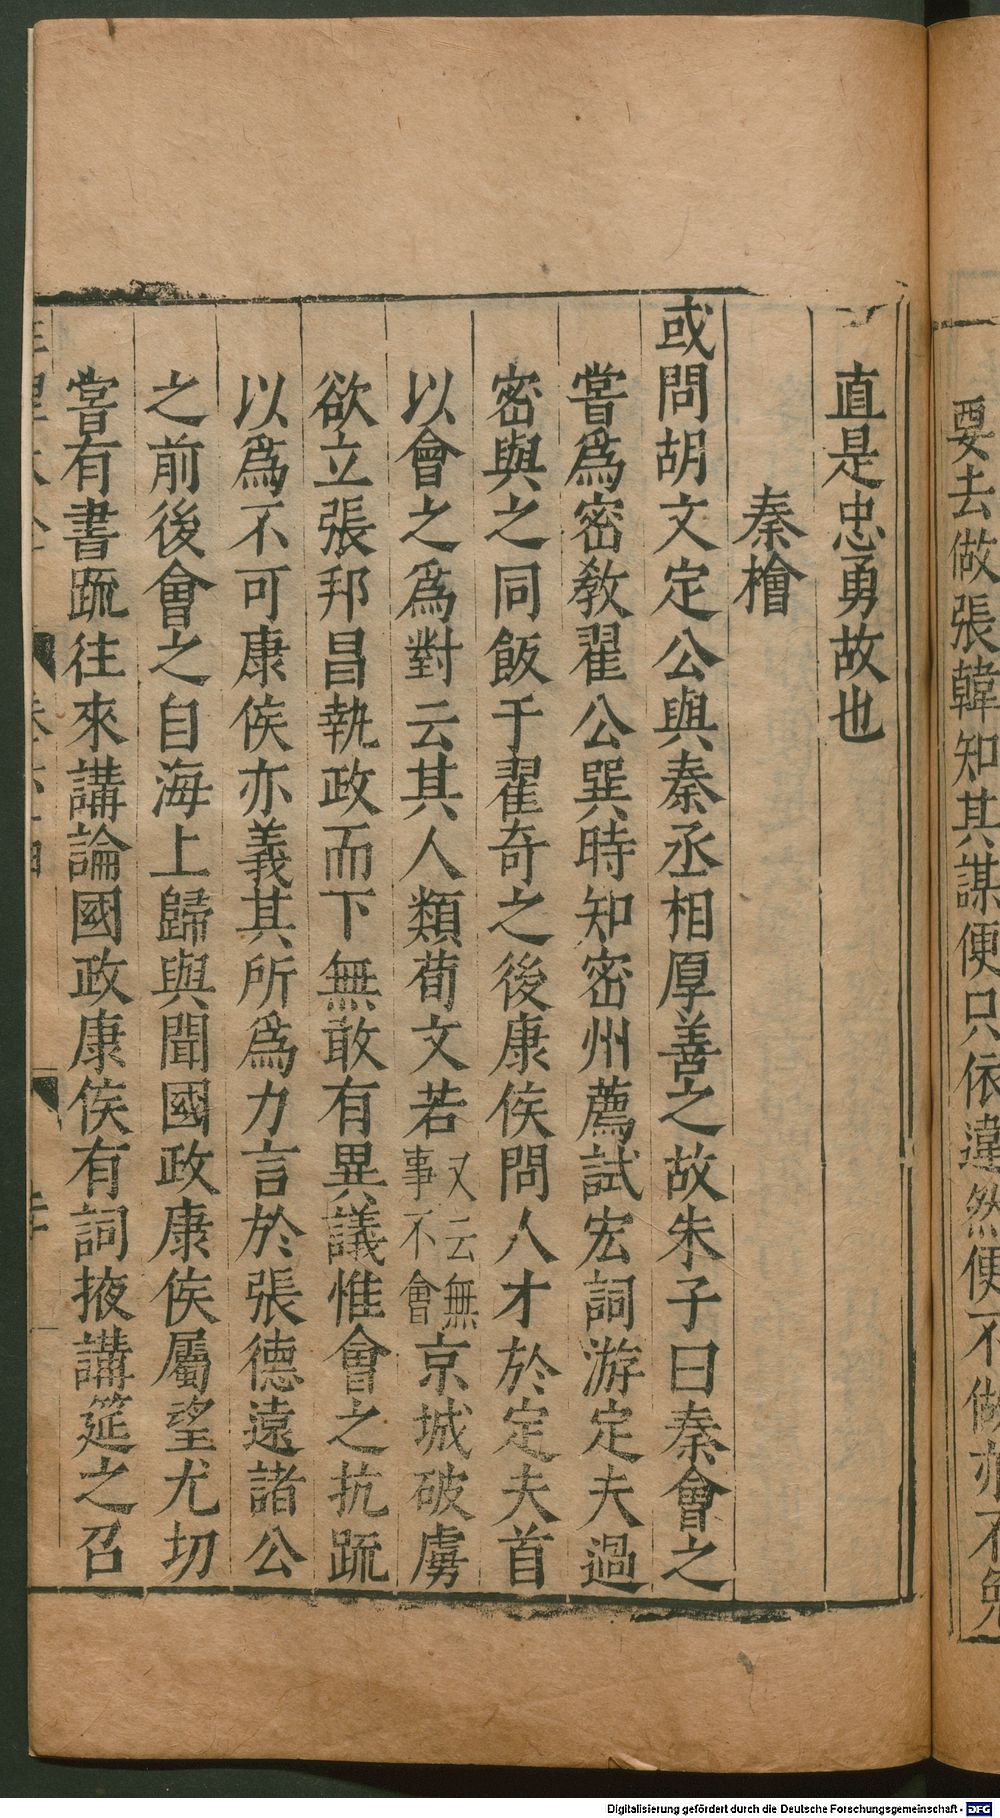 要去做張韓知其謀便只依違然便不做亦不免
直是忠勇故也
秦檜
或問胡文定公與秦丞相厚善之故朱子曰秦會之
嘗爲密教翟公巽時知密州薦試宏詞游定夫過
密與之同飯于翟奇之後康侯問人才於定夫首
以會之爲對云其人類荀文若又云無事不會京城破虜
欲立張邦昌執政而下無敢有異議惟會之抗疏
以爲不可康侯亦義其所爲力言於張德遠諸公
之前後會之自海上歸與聞國政康侯屬望尤切
嘗有書疏往來講論國政康侯有詞掖講筵之召
Digitalisierung gefördert durch die Deutsche Forschungsgemeinschaft - DFG